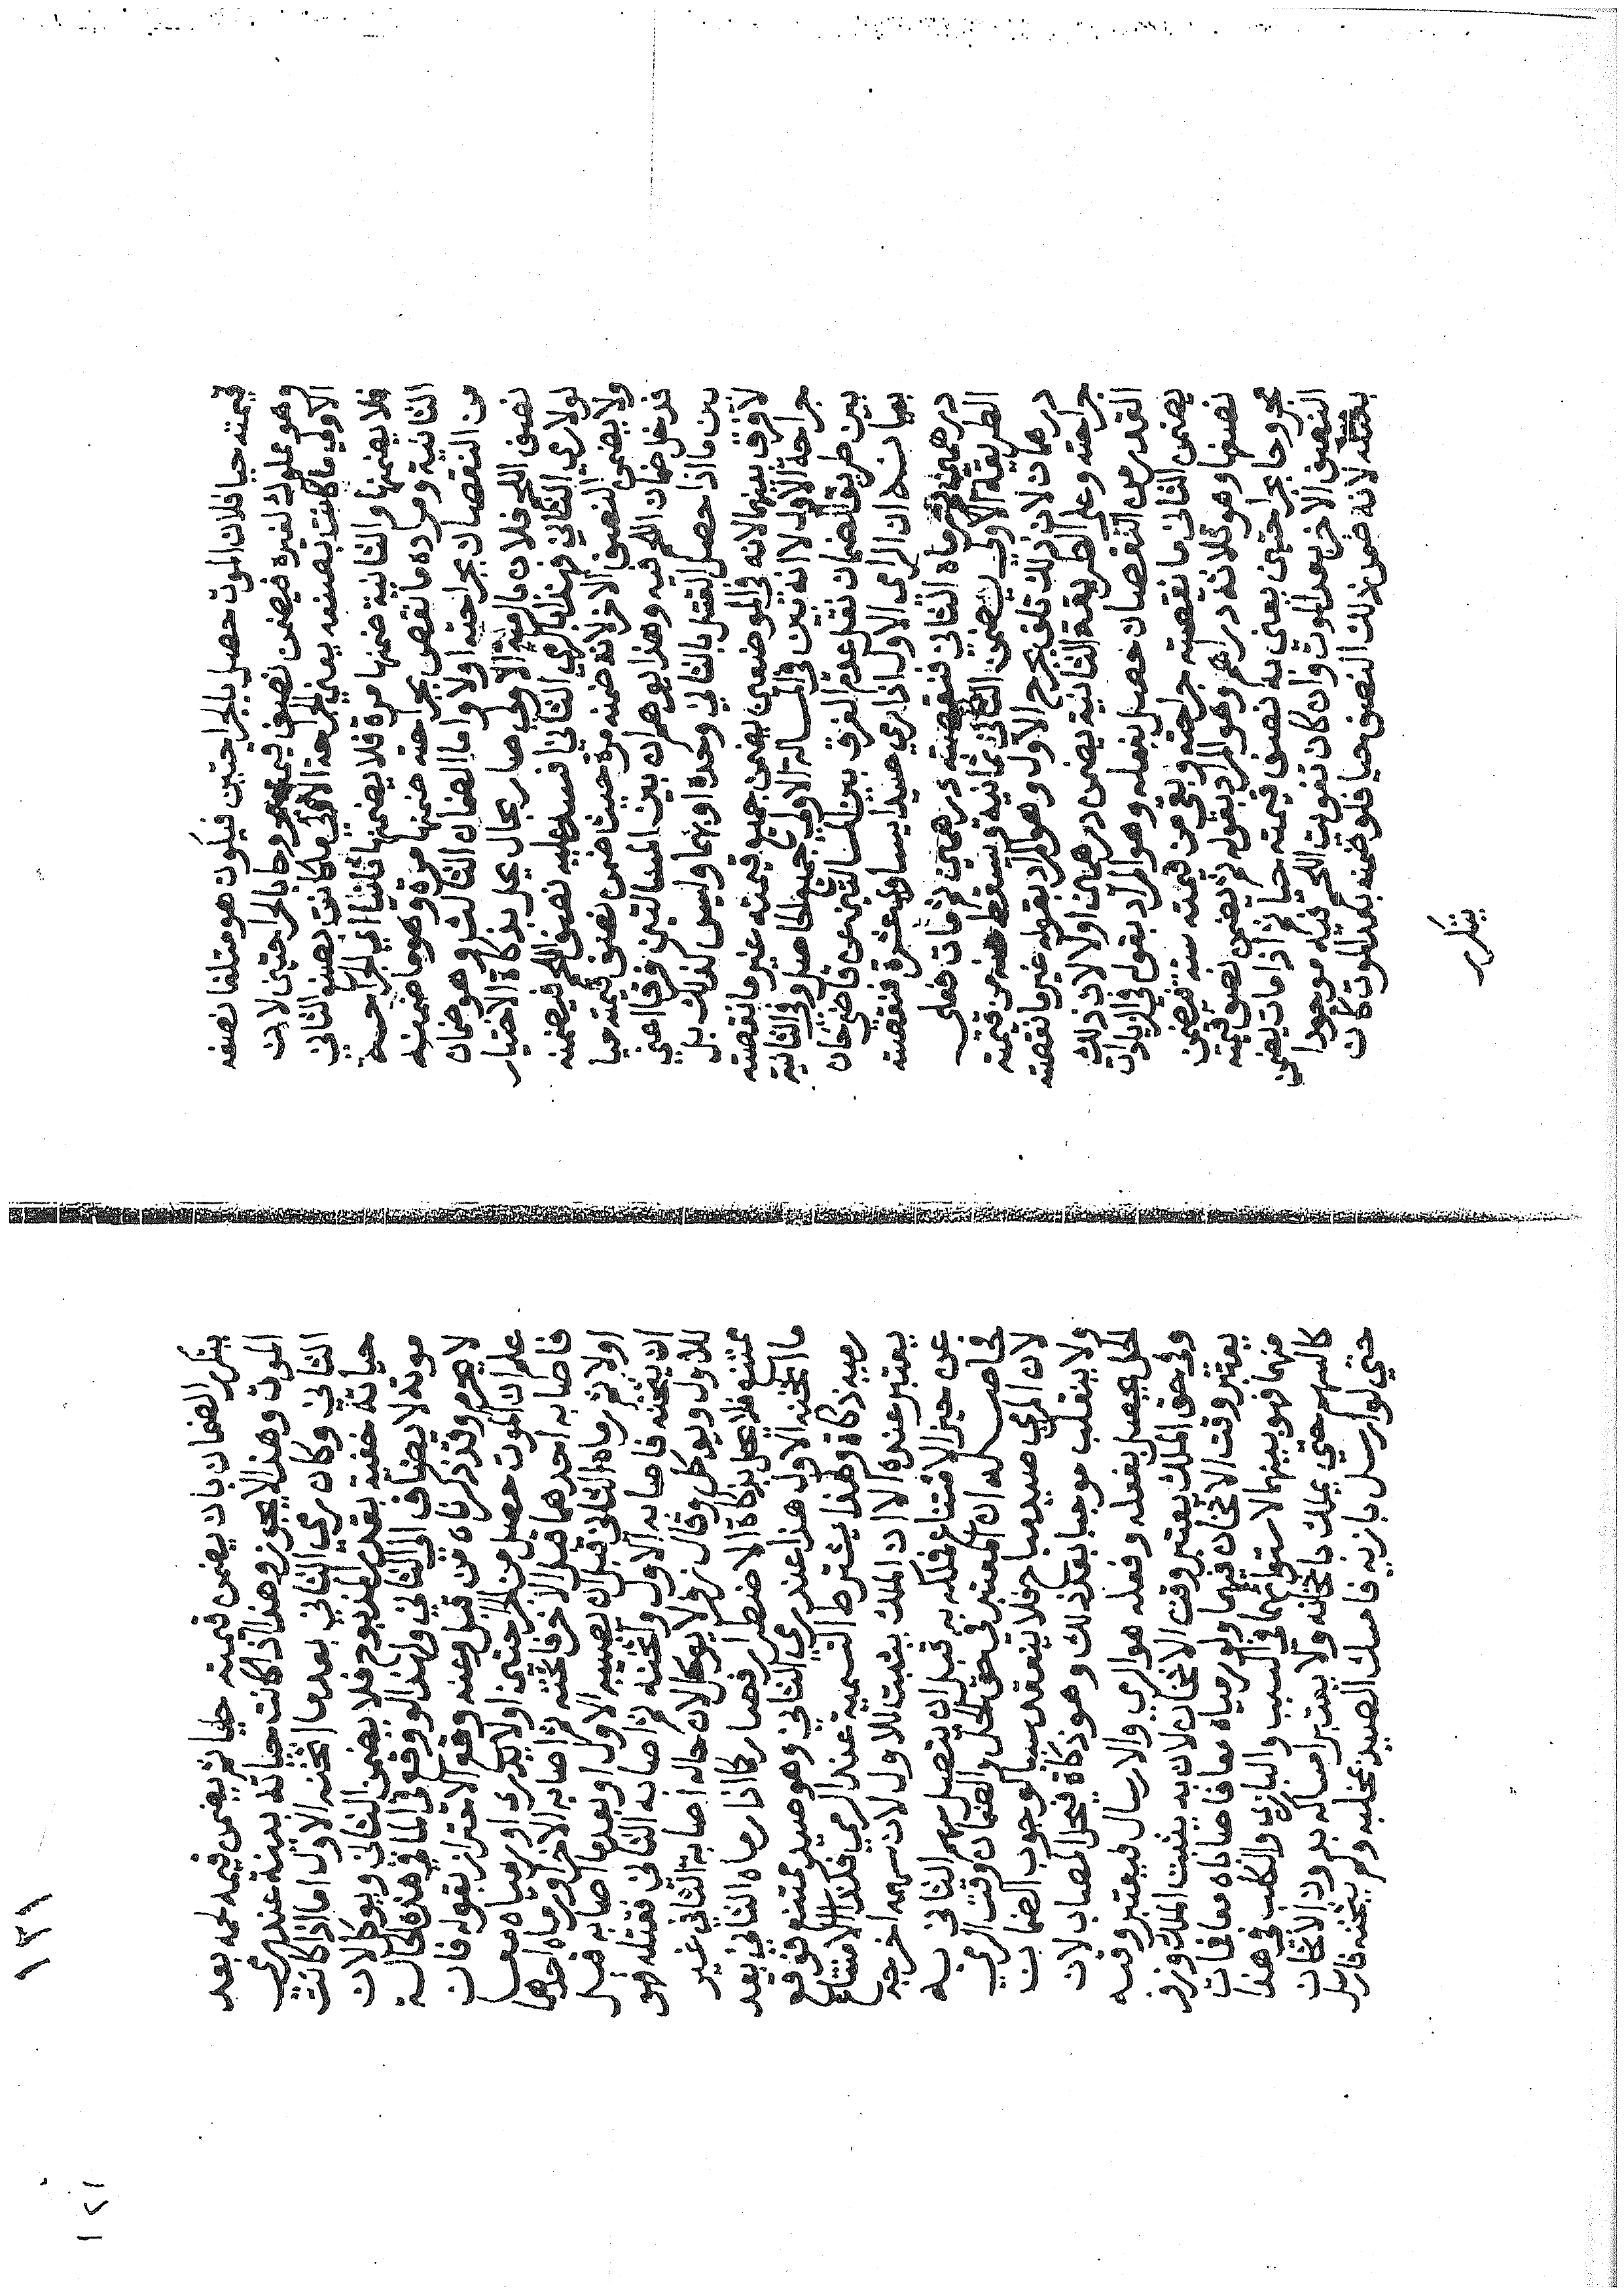 قيمته حيا فلان الموت حصل بالجراحتين فيكون هو متلفا نصفه
وهو مملوك لغيره فيضمن نصف قيمته مجروحا بالجراحتين لان
الاولي ما كانت بصنعه يعني الجراحة الاولي ما كانت بصنع الثاني
فلا يضمنها والثانية ضمنها مرة فلا يضمنها ثانيا اي الجراحة
الثانية ومراده ما نقص بجراحته ضمنها مرة وهو ما ضمنه
من النقصان بجراحته اولا واما الضمان الثالث وهو ضمان
نصف اللحم فلان بالرمية الاولي صار بحال يحل بذكاة الاختيار
لولا رمي الثاني فهذا بالرمي الثاني افسد عليه نصف اللحم فيضمنه
ولا يضمن النصف الاخر لانه ضمنه مرة حيث ضمن نصف قيمته حيا
فدخل ضمان اللحم فيه وهذا يوهم ان بين المسالتين فرقا اعني
بين ما اذا حصل القتل بالثاني وحده او بهما وليس كذلك بل
لا فرق بينهما لانه في الموضعين يضمن جميع قيمته غير ما نقصته
جراحة الاول الا انه بين في المسالة الاولي جميع الحاصل وفي الثانية
بين طريق الضمان نقل عدم الفرق بين المسالتين عن قاضي خان
بيانه ان الرامي الاول اذا رمي صيدا يساوي عشرة فنقصته
درهمين ثم رماه الثاني فنقصته درهمين ثم مات فعلي
الطريقة الاولي يضمن الثاني ثمانية ويسقط عنه من قيمته
درهمان لان ذلك تلف بجرح الاول وهو المراد بقوله غير ما نقصته
جراحته وعلي الطريقة الثانية يضمن درهمين اولا لان ذلك
القدر من النقصان حصل بفعله وهو المراد بقوله في الزيادات
يضمن الثاني ما نقصته جراحته وبقي من قيمته ستة فيضمن
نصفها وهو ثلاثة دراهم وهو المراد بقوله ثم يضمن نصف قيمته
مجروحا بجراحتين يعني به نصف قيمته حيا ثم اذا مات يضمن
النصف الاخر بعد الموت وان كان تفويت اللحم فيه موجودا
بقتله لانه ضمن ذلك النصف حيا فلو ضمنه بعد الموت كان
يتكرر
١٣١
١٢١
يتكرر الضمان بان يضمن قيمته حيا ثم يضمن قيمه لحمه بعد
الموت وهذا لا يجوز وهذا اذا كانت حياته بينة عند رمي
الثاني وكان رمي الثاني بعدما اثخنه الاول اما اذا كانت
حياته خفية بقدر المذبوح فلا يضمن الثاني ويوكل لان
موته لا يضاف الي الثاني ولهذا لو وقع في الماء في هذه الحالة
لا يحرم وقد ذكرناه من قبل وعنه وقع الاحتراز بقوله فان
علم ان الموت حصل من الجراحتين اولا يدري او رمياه معا
فاصابه احدهما قبل الاخر فاثخنه ثم اصابه الاخر او رماه احدهما
اولا ثم رماه الثاني قبل ان يصيبه الاول او بعدما اصابه قبل
ان يثخنه فاصابه الاول واثخنه ثم اصابه الثاني فقتله فهو
للاول ويوكل وقال زفر لا يوكل لان حال اصابة الثاني غير
ممتنع فلا يحل بذكاة الاضطرار فصار كما اذا رماه الثاني بعد
ما اثخنه الاول هذا عند رمي الثاني وهو صيد ممتنع فوقع
رميه ذكاة ولهذا يشترط التسمية عند الرمي فكذا الامتناع
يعتبر عنده الا ان الملك يثبت للاول لان سهمه اخرجه
عن حيز الامتناع فملكه به قبل ان يتصل سهم الثاني به
فحاصله ان المعتبر في حق الحل والضمان وقت الرمي
لان الرمي صيد مباح فلا ينعقد سببا لوجوب الضمان
ولا ينقلب موجبا بعد ذلك وهو ذكاة فيحل المصاب لان
الحل يحصل بفعله وفعله هو الرمي والارسال فيعتبر وقته
وفي حق الملك يعتبر وقت الاثخان لان به يثبت الملك وزفر
يعتبر وقت الاثخان فيهما ولو رمياه معا فاصاباه معا فمات
منهما فهو بينهما لاستوائهما في السبب والبازي والكلب في هذا
كالسهم حتي يملك باثخانه ولا يعتبر امساكه بدون الاثخان
حتي لو ارسل بازيه فامسك الصيد بمخلبه ولم يثخنه فارسل